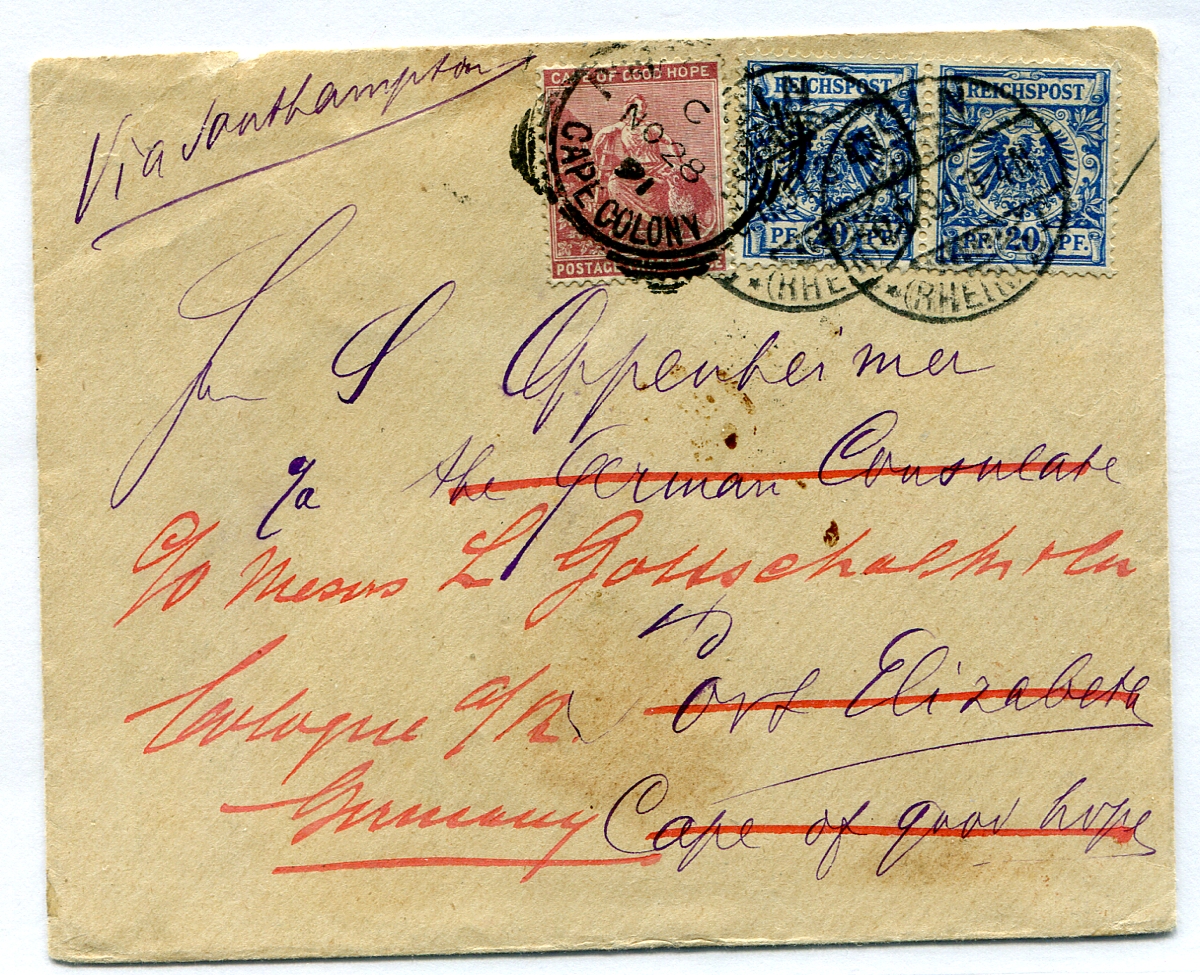 Via Southampton
CAPE OF GOOD HOPE
POSTAGE
C
NO 28
91
CAPE COLONY
REICHSPOST
20 PF.
REICHSPOST
PF. 20 PF.
(RHEIN)
(RHEIN)
S Oppenheimer
c/o the German Consulate
c/o Messrs L Gottschalk
Port Elizabeth
Cologne a/R.
Cape of good hope
Germany